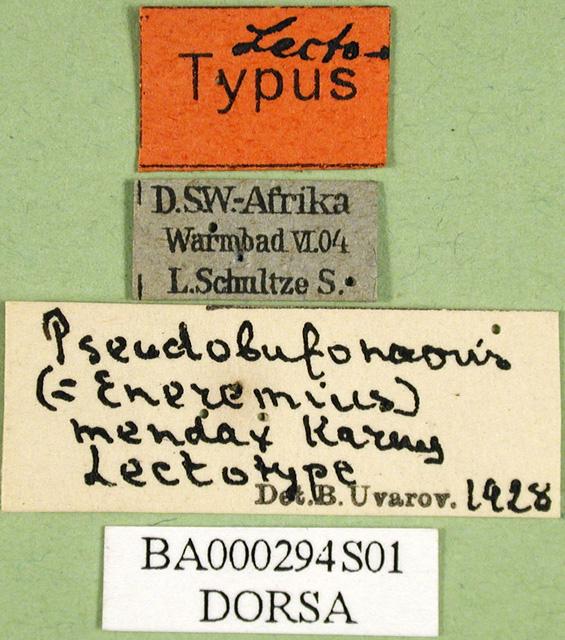 Lecto-
Typus
D.SW.-Afrika
Warmbad VI.04
L.Schultze S.
Pseudobufonacris
(= Eneremius)
mendax Karny
Lectotype
Det.B.Uvarov. 1928
BA000294S01
DORSA